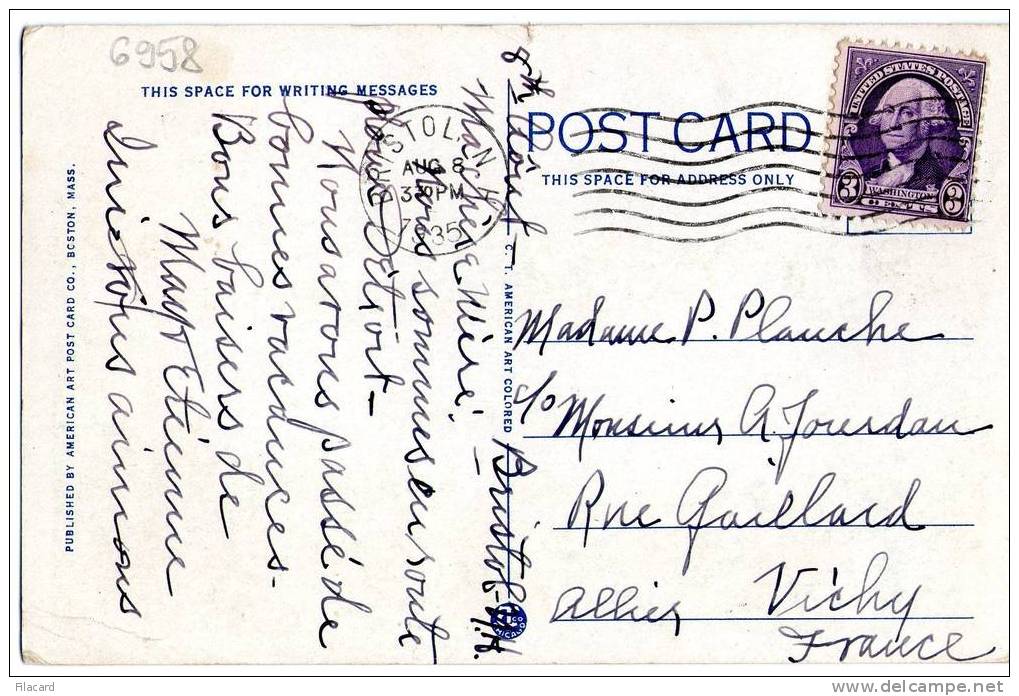 6958
THIS SPACE FOR WRITING MESSAGES
8th août –
Bristol – N.H.
Ma chère Mère.
Nous sommes en route
pour Détroit –
Nous avons passé de
bonnes vacances –
Bons baisers de
Etienne
qui vous aimons
PUBLISHED BY AMERICAN ART POST CARD CO., BOSTON, MASS.
C. T. AMERICAN ART COLORED
BRISTOL N H
AUG 8
3 30 PM
1935
POST CARD
THIS SPACE FOR ADDRESS ONLY
UNITED STATES POSTAGE
WASHINGTON
3 CENTS 3
Madame P. Planche
c/o Monsieur A. Jourdan
Rue Gaillard
Vichy
Allier
France
Filacard
www.delcampe.net